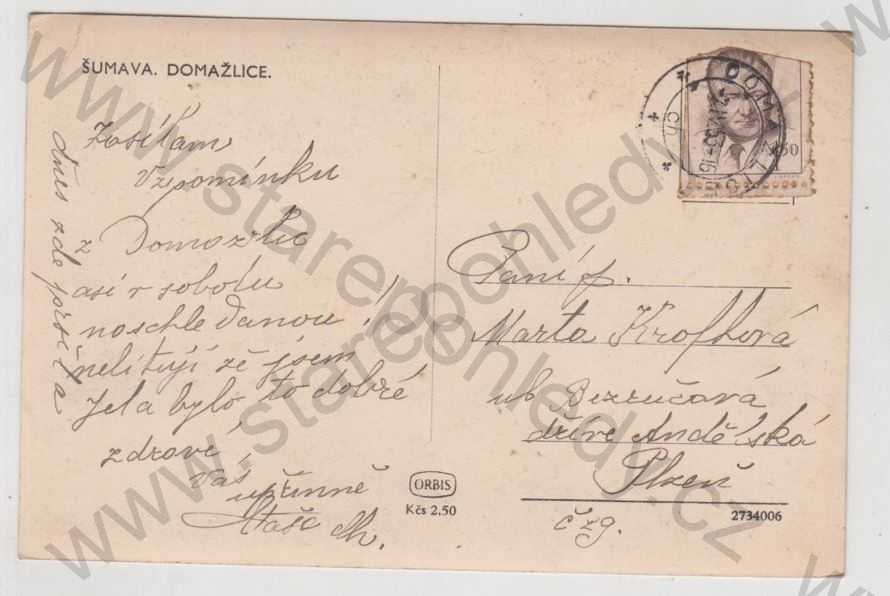 ŠUMAVA. DOMAŽLICE.
Zasílam
Vzpomínku
z Domažlic
asi v sobotu
naschledanou!
nelituji že jsem
jela bylo to dobré
zdravé
Váš
upřímně
dnes zde pršela
Paní p.
Marta Kroftová
ul. Bezručová
dříve Andělská
Plzeň
č 29.
ORBIS
Kčs 2,50
2734006
www.starepohledy.cz